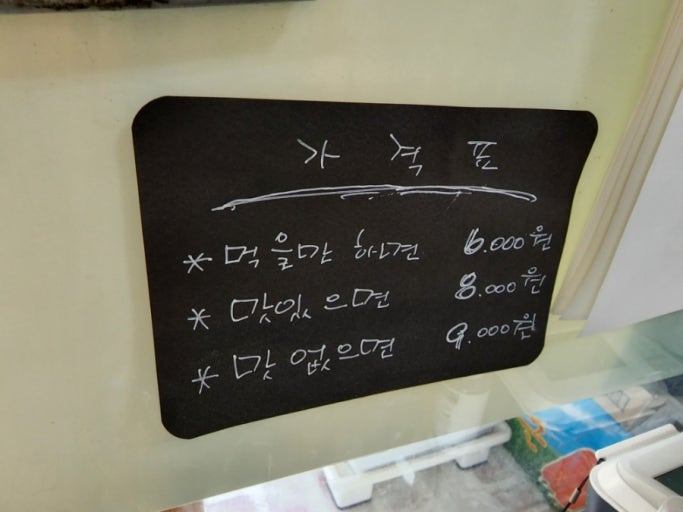 가 격 표
* 먹을만 하면 6.000원
* 맛있으면 8.000원
* 맛 없으면 9.000원